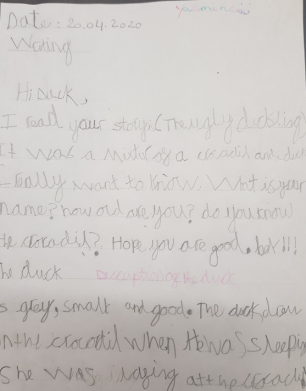 Date: 20.04.2020
Writing
Hi Duck,
I read your story (The ugly duckling
It was a of a crocodil and duc
I really want to know. What is your
name? how old are you? do you know
the crocodil? Hope you are good.
The duck
is grey, small and good. The duck draw
on the crocodil when He was sleepin
She was at the crocodi